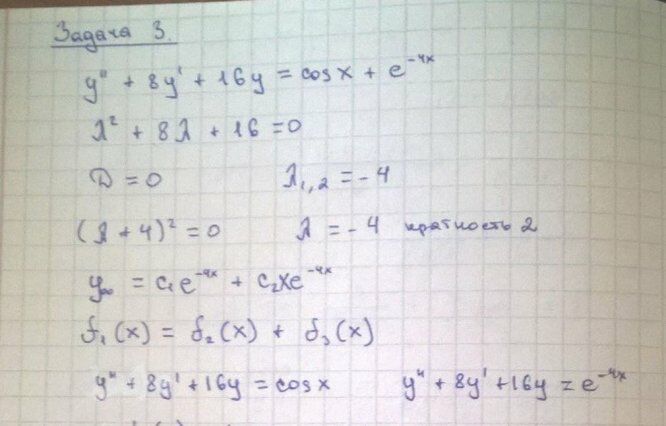 Задача 3.
y'' + 8y' + 16y = cos x + e^{-4x}
λ² + 8λ + 16 = 0
D = 0 λ₁,₂ = -4
(λ + 4)² = 0 λ = -4 кратность 2
y₀₀ = c₁e^{-4x} + c₂xe^{-4x}
f₁(x) = f₂(x) + f₃(x)
y'' + 8y' + 16y = cos x y'' + 8y' + 16y = e^{-4x}